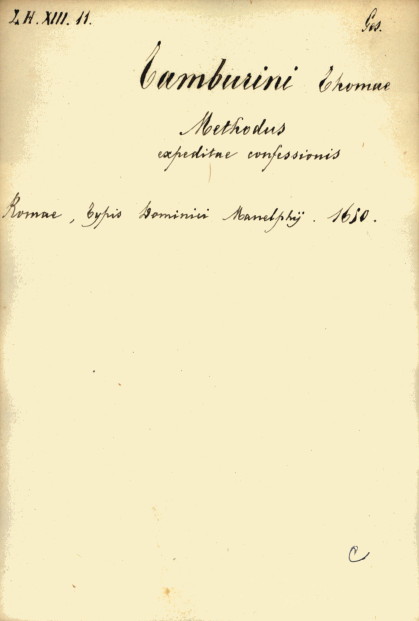 L H. XIII. 11.
Ges.
Tamburini Thomae
Methodus
expeditae confessionis
Romae, Typis Dominici Manelphij. 1650.
C